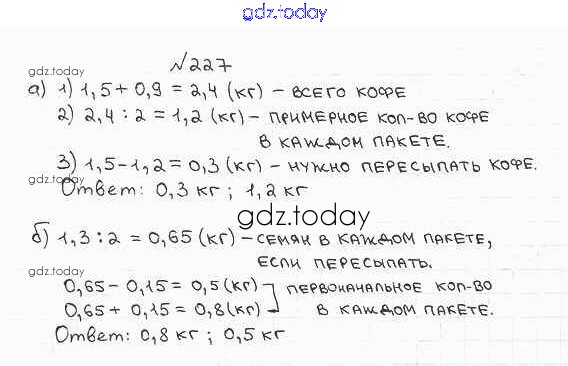 gdz.today
№227
gdz.today
а) 1) 1,5 + 0,9 = 2,4 (кг) – всего кофе
2) 2,4 : 2 = 1,2 (кг) – примерное кол-во кофе
в каждом пакете.
3) 1,5 – 1,2 = 0,3 (кг) – нужно пересыпать кофе.
gdz.today
Ответ: 0,3 кг ; 1,2 кг
gdz.today
б) 1,3 : 2 = 0,65 (кг) – семян в каждом пакете,
если пересыпать.
gdz.today
0,65 – 0,15 = 0,5 (кг) первоначальное кол-во
0,65 + 0,15 = 0,8 (кг) в каждом пакете.
Ответ: 0,8 кг ; 0,5 кг
gdz.today